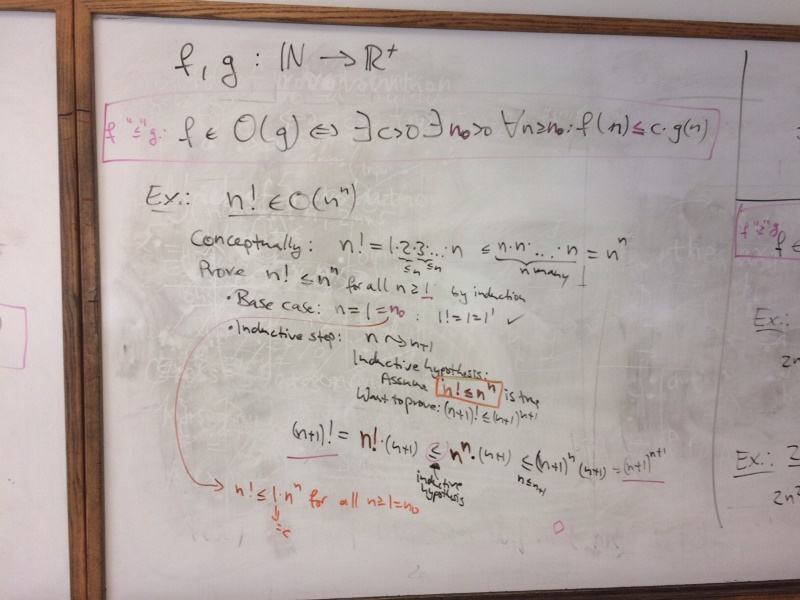 f, g : ℕ → ℝ⁺
f "≤" g: f ∈ O(g) ⇔ ∃c>0 ∃n₀>0 ∀n≥n₀: f(n) ≤ c·g(n)
Ex.: n! ∈ O(nⁿ)
Conceptually: n! = 1·2·3·...·n ≤ n·n·...·n = nⁿ
≤n ≤n n many
Prove n! ≤ nⁿ for all n ≥ 1 by induction
• Base case: n = 1 = n₀ : 1! = 1 = 1¹ ✓
• Inductive step: n ⤳ n+1
Inductive hypothesis:
Assume n! ≤ nⁿ is true
Want to prove: (n+1)! ≤ (n+1)ⁿ⁺¹
(n+1)! = n!·(n+1) ≤ nⁿ·(n+1) ≤ (n+1)ⁿ(n+1) = (n+1)ⁿ⁺¹
inductive hypothesis n≤n+1
n! ≤ 1·nⁿ for all n ≥ 1 = n₀
=c
f "≥" g
f ∈
Ex.:
2n
Ex.: 2
2n²